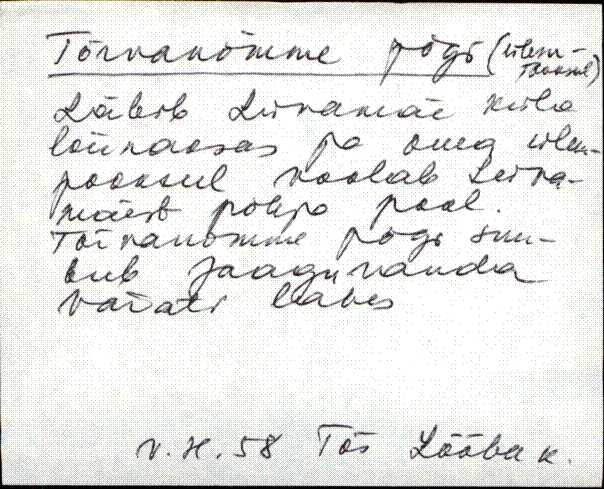 Tõrvanõmme jõgi (ülem-
jooksul)
Läbib Liivamäe küla
lõunaosas ja oma ülem-
jooksul voolab Liiva-
mäest põhja pool.
Tõrvanõmme jõgi suu-
bub Jaaguranda
värati lähes
V.H. 58 Tõs Lööbak.